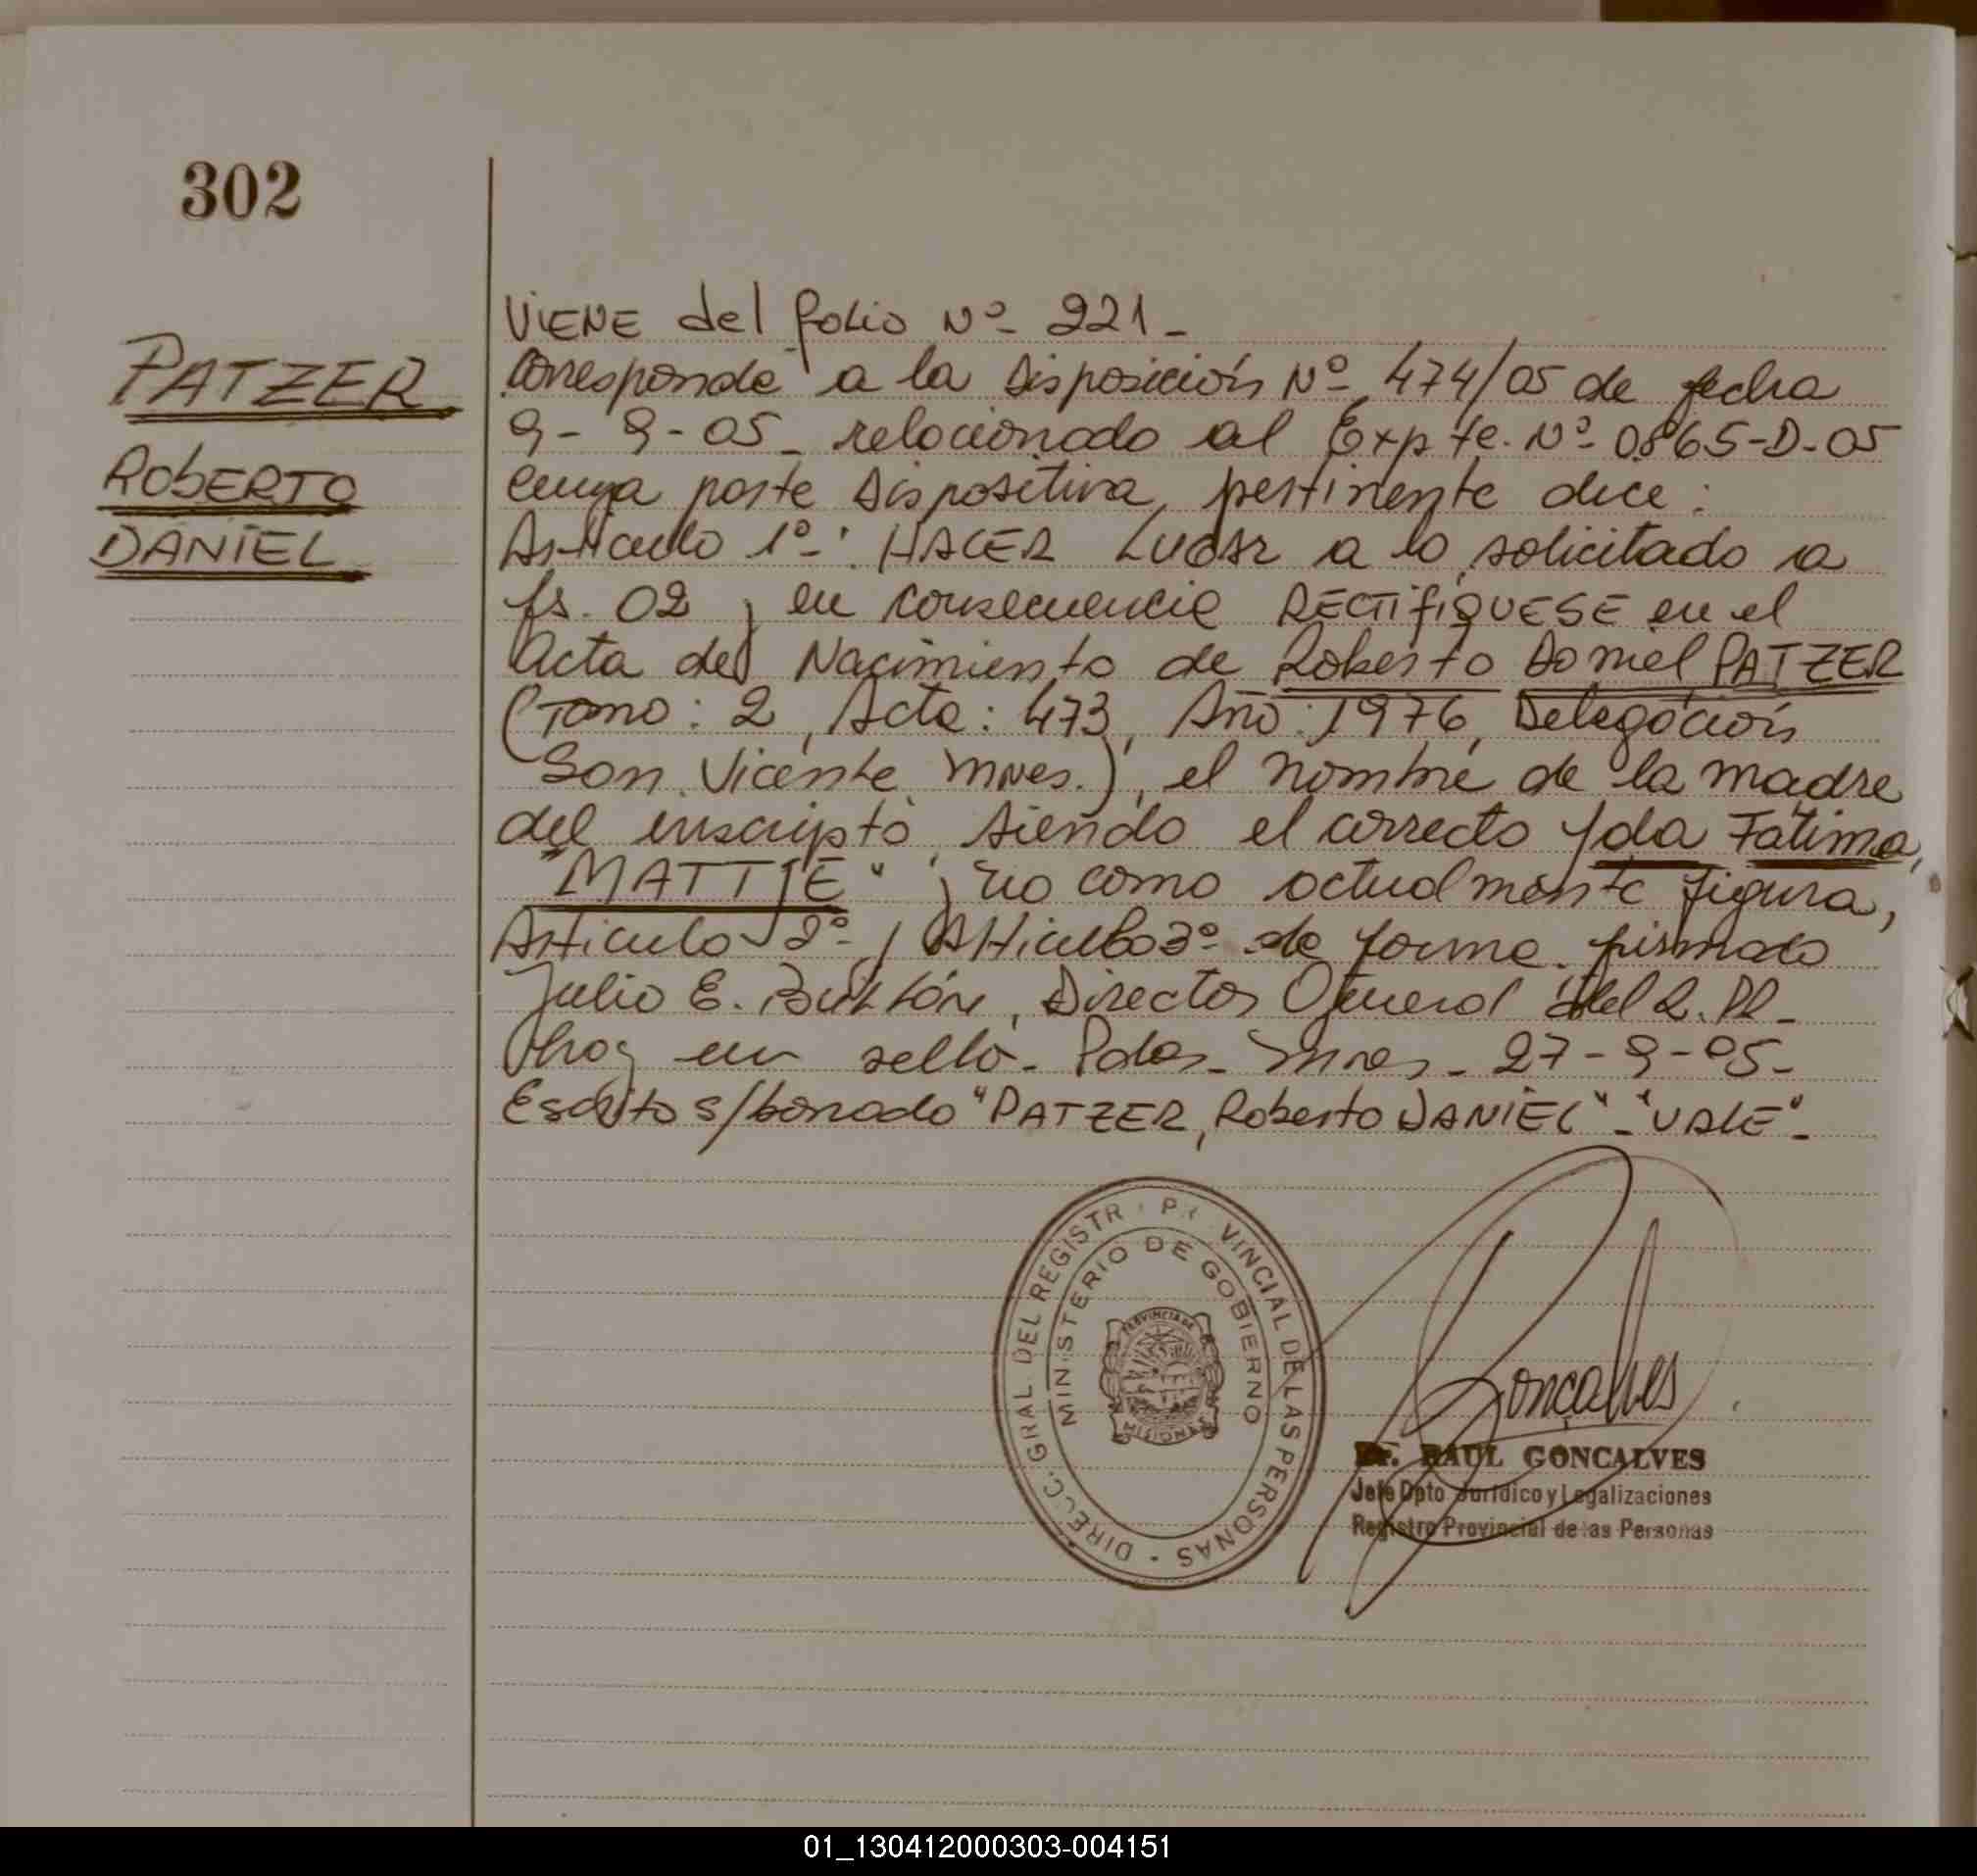 302
PATZER
ROBERTO
DANIEL
VIENE del folio Nº 221_
Corresponde a la Disposición Nº 474/05 de fecha
9-9-05_ relacionado al Expte. Nº 0865-D-05
cuya parte Dispositiva, pertinente dice:
Artículo 1º: HACER LUGAR a lo solicitado a
fs. 02 y en consecuencia RECTIFIQUESE en el
Acta de Nacimiento de Roberto Daniel PATZER
(Tomo: 2, Acta: 473, Año: 1976, Delegación
San Vicente Mnes.), el nombre de la madre
del inscripto, siendo el correcto Yda Fatima,
"MATTJE" y no como actualmente figura,
Artículo 2º y Artículo 3º de forma. firmado
Julio E. Director General del R.P.P.
hay un sello. Pdas. Mnes. 27-9-05-
Escrito s/borrado "PATZER, Roberto DANIEL" - "VALE"-
DIRECC. GRAL. DEL REGISTR PR VINCIAL DE LAS PERSONAS
MINISTERIO DE GOBIERNO
PROVINCIA DE
MISIONES
Gonçalves
Dr. RAUL GONCALVES
Jefe Dpto Jurídico y Legalizaciones
Registro Provincial de las Personas
01_130412000303-004151